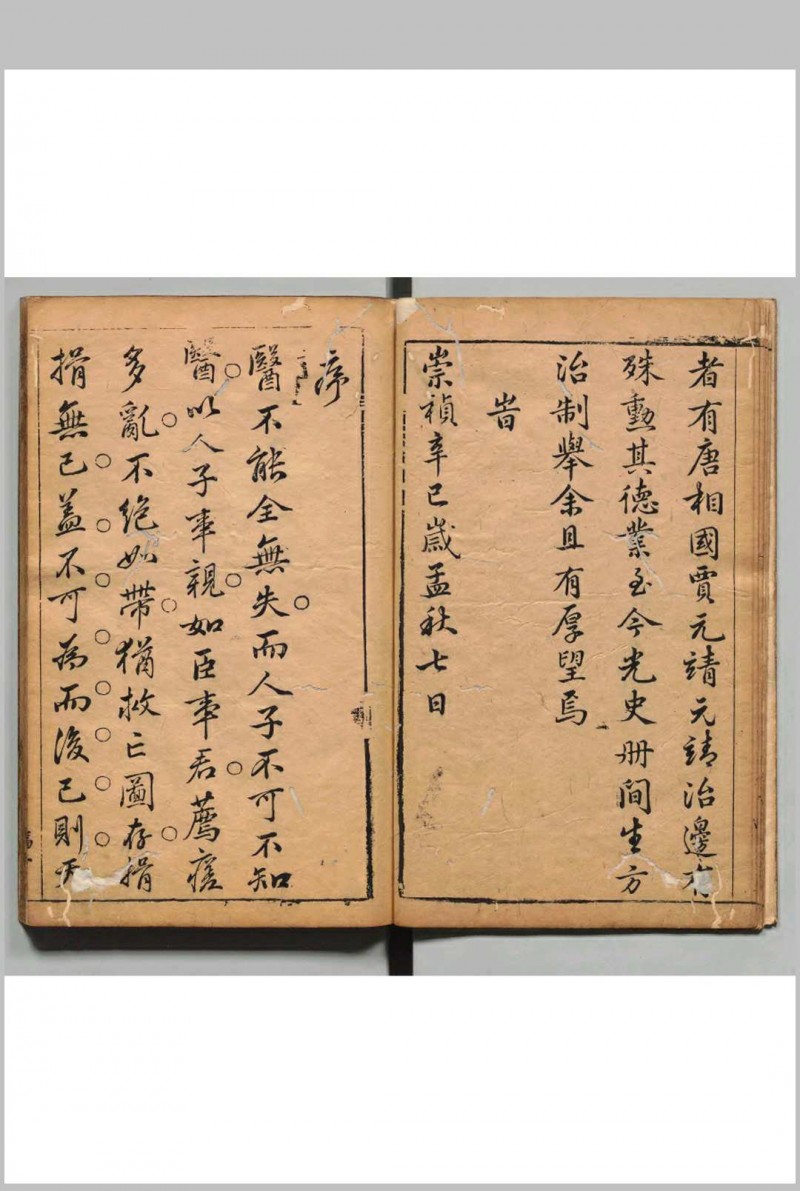 者有唐相國賈元靖元靖治邊有
殊勳其德業至今光史冊間生方
治制舉余且有厚望焉
旹
崇禎辛巳歲孟秋七日
序
醫不能全無失而人子不可不知
醫以人子事親如臣事君薦瘥
多亂不絕如帶猶救亡圖存捐
捐無已蓋不可為而後已則